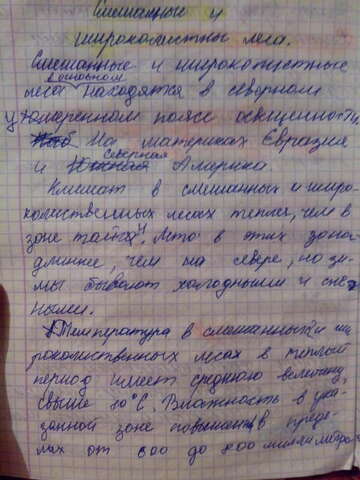 Смешанные и
широколистны леса.
Смешанные и широколистные
в основном
леса находятся в северном
умеренном поясе освещенности,
На материках Евразия
северная
и Южная Америка.
Климат в смешанных и широ-
колиственных лесах теплее, чем в
зоне тайги. Лето в этих зонах
длиннее, чем на севере, но зи-
мы бывают холодными и снеж-
ными.
Температура в смешанных и ши-
роколиственных лесах в теплый
период имеет среднюю величину,
свыше 10°C. Влажность в ука-
занной зоне повышена, в преде-
лах от 600 до 800 миллиметров